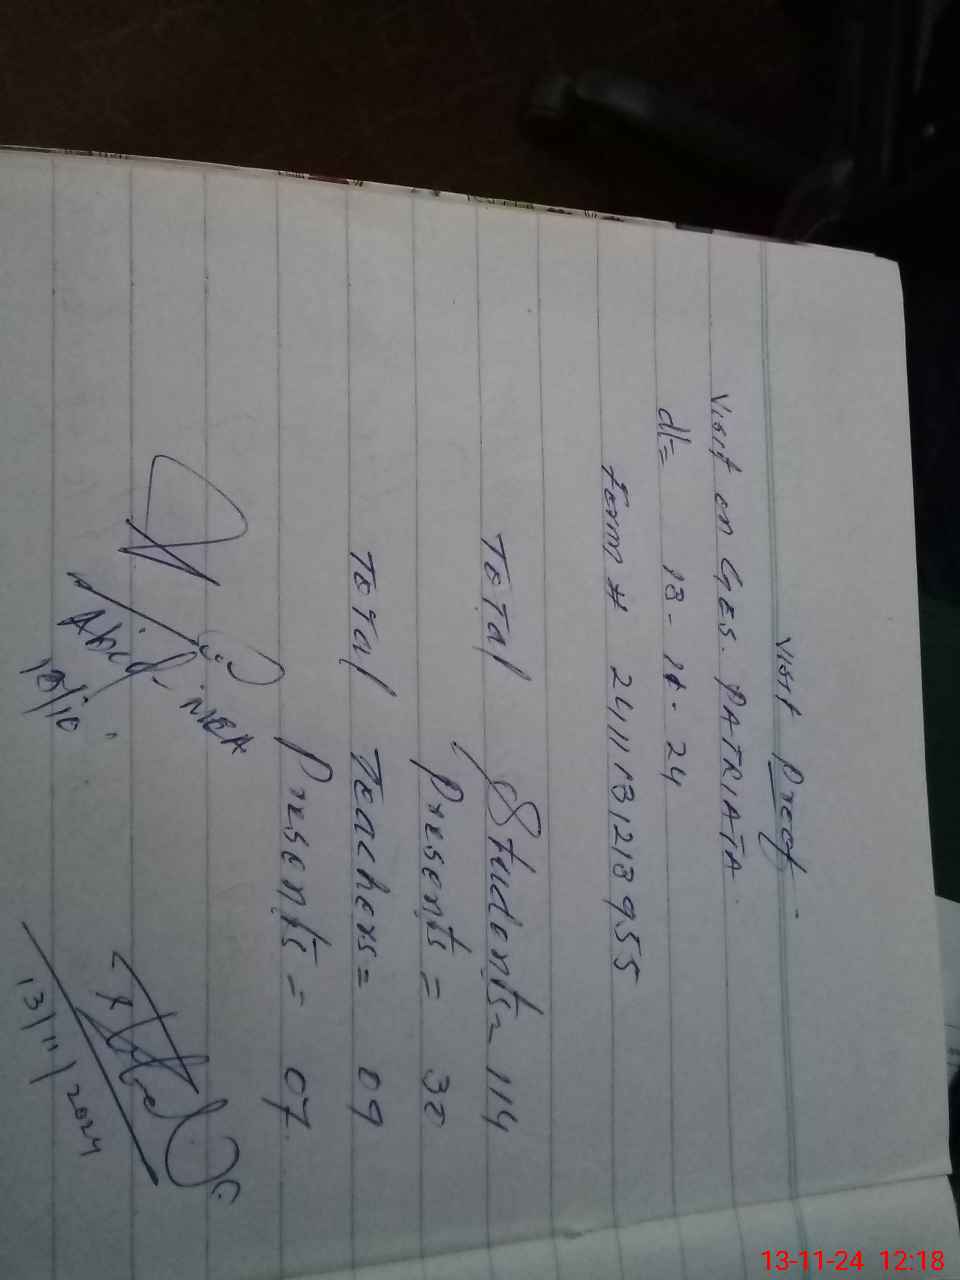 Visit Proof
Visit on GES. PATRIATA
dt= 13-11-24
Form # 2411131218955
Total Students= 114
Presents = 30
Total Teachers= 09
Presents = 07
Abid, MEA
13/11/2024
13-11-24 12:18